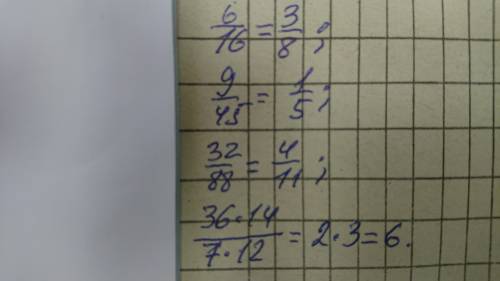 6/16 = 3/8;
9/45 = 1/5;
32/88 = 4/11;
36·14/7·12 = 2·3=6.